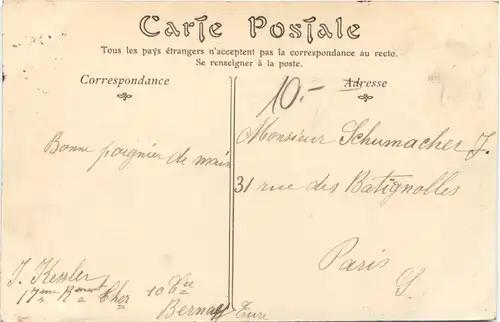 Carte Postale
Tous les pays étrangers n'acceptent pas la correspondance au recto.
Se renseigner à la poste.
Correspondance
Adresse
10.-
Bonne poignier de main
Monsieur Schumacher J.
31 rue des Batignolles
Paris
J. Kessler
17eme 10 Cie
Bernay Eure